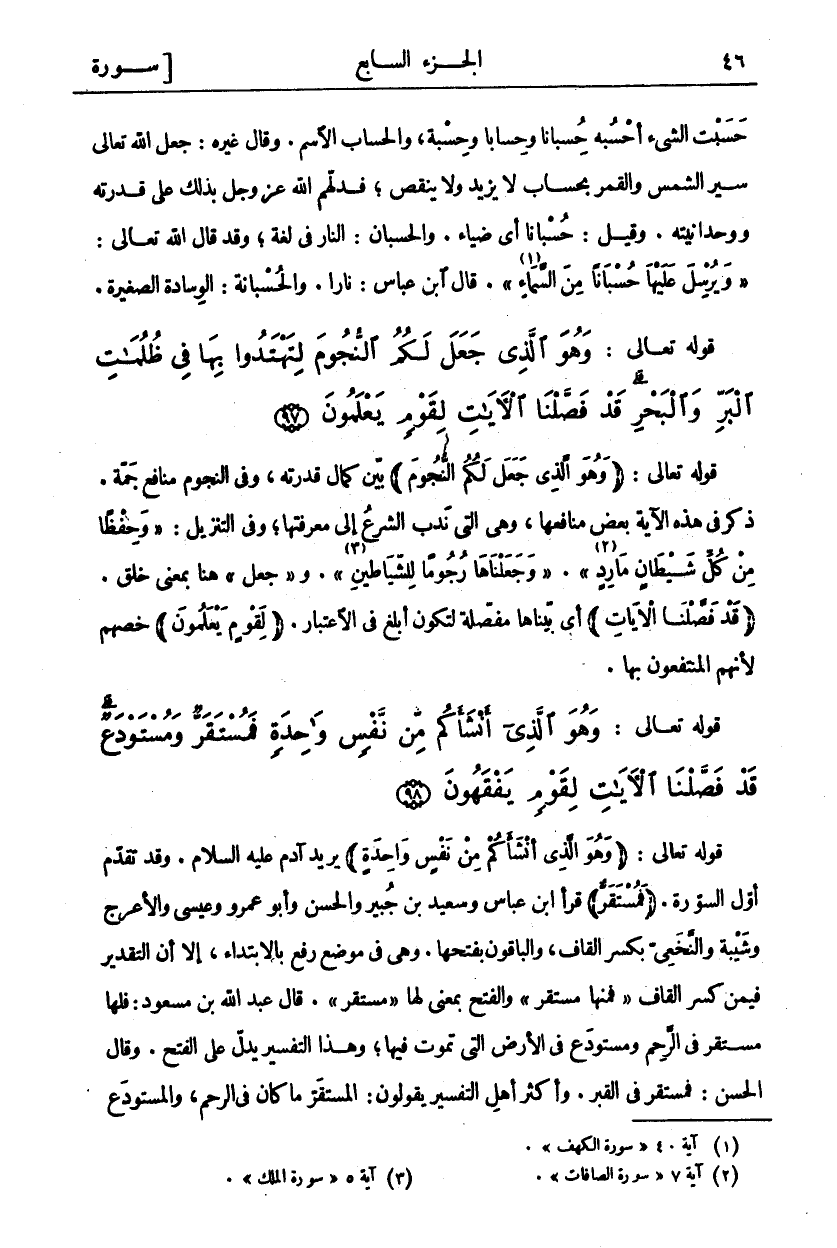 ٤٦ الجـزء السابع [ سـورة
حَسَبْت الشيء أحْسُبه حُِسبانا وحِسابا وحِسْبة، والحساب الاسم . وقال غيره : جعل الله تعالى
سـير الشمس والقمر بحساب لا يزيد ولا ينقص ؛ فـدلّهم الله عز وجل بذلك على قـدرته
ووحدانيته . وقيـل : حُسْبانا أى ضياء . والحسبان : النار فى لغة ؛ وقد قال الله تعـالى :
« وَيُرْسِلَ عَلَيْهَا حُسْبَانًا مِنَ السَّمَاءِ (١) » . قال آبن عباس : نارا . والحُسْبانة : الوِسادة الصغيرة .
قوله تعـالى : وَهُوَ ٱلَّذِى جَعَلَ لَكُمُ ٱلنُّجُومَ لِتَهْتَدُوا بِهَا فِى ظُلُمَـٰتِ
ٱلْبَرِّ وَٱلْبَحْرِ ۗ قَدْ فَصَّلْنَا ٱلْآيَـٰتِ لِقَوْمٍ يَعْلَمُونَ ﴿٩٧﴾
قوله تعالى : ﴿ وَهُوَ الَّذِى جَعَلَ لَكُمُ النُّجُومَ ﴾ بيّن كمال قدرته ، وفى النجوم منافع جَمّة .
ذكر فى هذه الآية بعض منافعها ، وهى التى نَدب الشرعُ إلى معرفتها ؛ وفى التنزيل : « وَحِفْظًا
مِنْ كُلِّ شَـيْطَانٍ مَارِدٍ (٢) » . « وَجَعَلْنَاهَا رُجُومًا لِلشَّيَاطِينِ (٣) » . و « جعل » هنا بمعنى خلق .
﴿ قَدْ فَصَّلْنَـا الْآيَاتِ ﴾ أى بيّناها مفصّلة لتكون أبلغ فى الآعتبار . ﴿ لِقَوْمٍ يَعْلَمُونَ ﴾ خصهم
لأنهم المنتفعون بها .
قوله تعـالى : وَهُوَ ٱلَّذِىٓ أَنْشَأَكُم مِّن نَّفْسٍ وَٰحِدَةٍ فَمُسْتَقَرٌّ وَمُسْتَوْدَعٌ ۗ
قَدْ فَصَّلْنَا ٱلْآيَـٰتِ لِقَوْمٍ يَفْقَهُونَ ﴿٩٨﴾
قوله تعالى : ﴿ وَهُوَ الَّذِى أَنْشَأَكُمْ مِنْ نَفْسٍ وَاحِدَةٍ ﴾ يريد آدم عليه السلام . وقد تقدّم
أوّل السورة . ﴿ فَمُسْتَقَرٌّ ﴾ قرأ ابن عباس وسعيد بن جُبير والحسن وأبو عمرو وعيسى والأعرج
وشَيْبة والنَّخَعِىّ بكسر القاف ، والباقون بفتحها . وهى فى موضع رفع بالابتداء ، إلا أن التقدير
فيمن كسر القاف « فمنها مستقر » والفتح بمعنى لها « مستقر » . قال عبد الله بن مسعود : فلها
مستـقر فى الرَّحِم ومستودَع فى الأرض التى تموت فيها ؛ وهـذا التفسير يدلّ على الفتح . وقال
الحسن : فمستقر فى القبر . وأكثر أهل التفسير يقولون : المستقَرّ ما كان فى الرحم ، والمستودَع
(١) آية ٤٠ « سورة الكهف » .
(٢) آية ٧ « سورة الصافات » . (٣) آية ٥ « سورة الملك » .